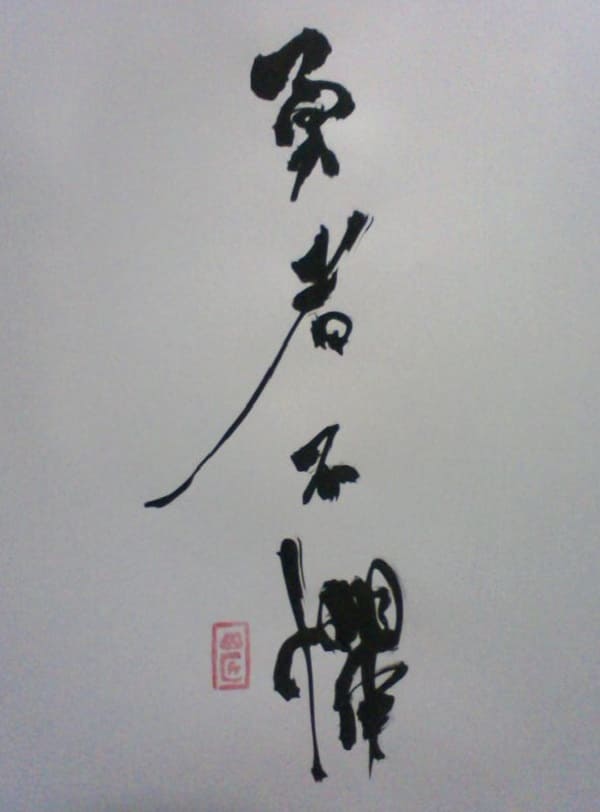 勇者不懼